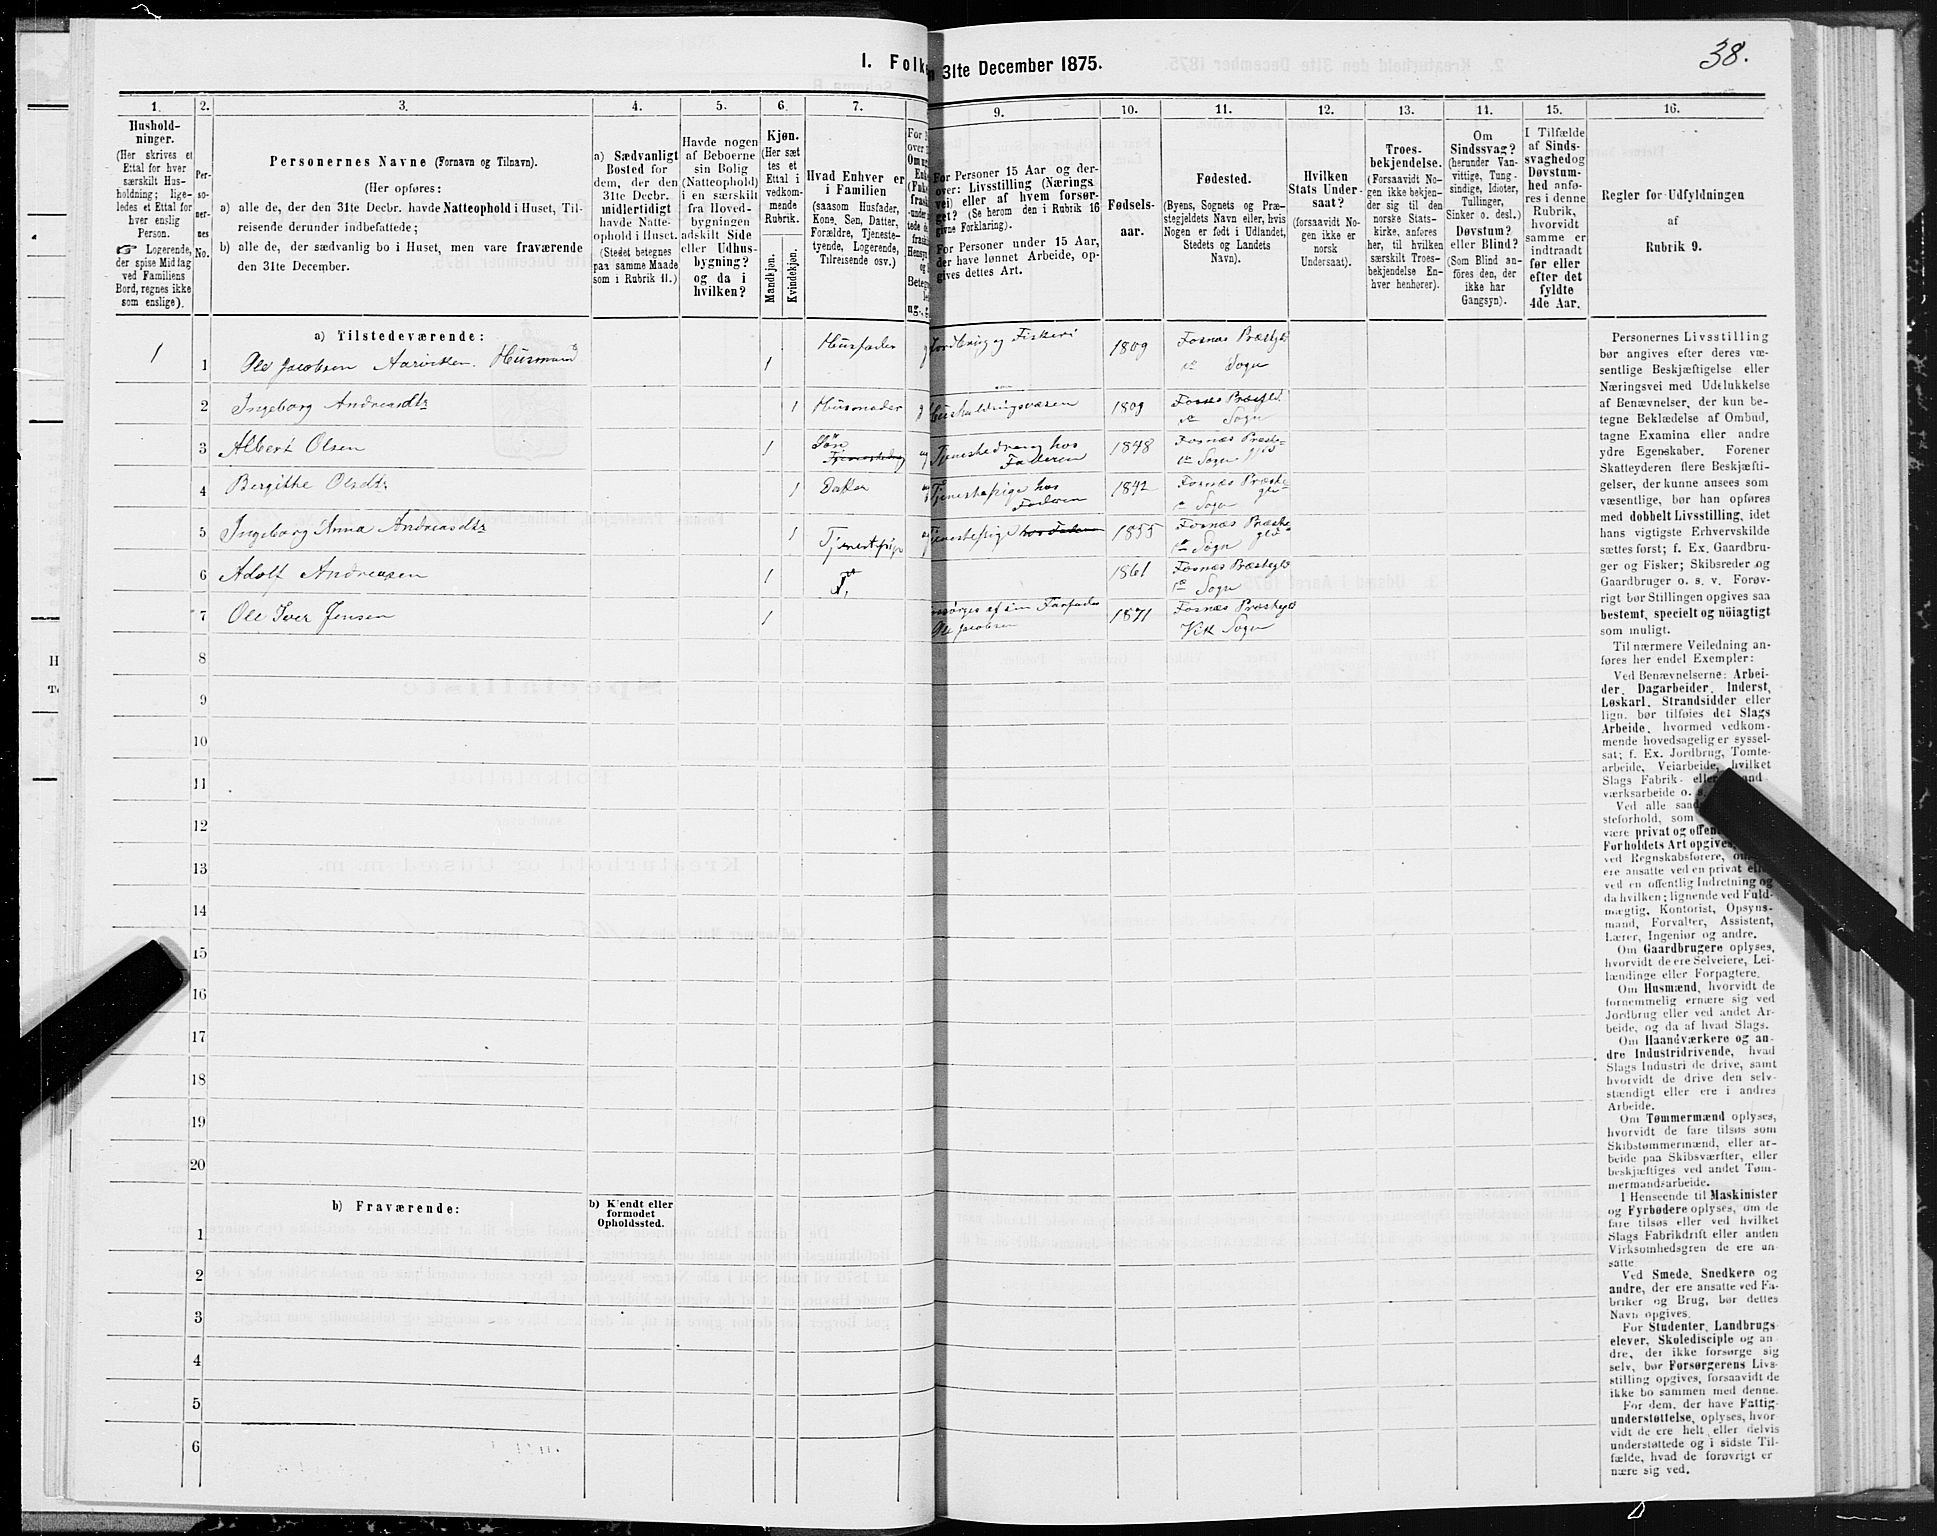 38.
1. Folk
n 31te December 1875.
1.
2.
3.
4.
5.
6.
7.
9.
10.
11.
12.
13.
14.
15.
16.
Hushold-
ninger.
(Her skrives et
Ettal for hver
særskilt Hus-
holdning; lige-
ledes et Ettal for
hver enslig
Person.
☞ Logerende,
der spise Middag
ved Familiens
Bord, regnes ikke
som enslige).
Per-
so-
ner-
nes
No.
Personernes Navne (Fornavn og Tilnavn).
(Her opføres:
a) alle de, der den 31te Decbr. havde Natteophold i Huset, Til-
reisende derunder indbefattede;
b) alle de, der sædvanlig bo i Huset, men vare fraværende
den 31te December.
a) Sædvanligt
Bosted for
dem, der den
31te Decbr.
midlertidigt
havde Natte-
ophold i Huset.
(Stedet betegnes
paa samme Maade
som i Rubrik 11.)
Havde nogen
af Beboerne
sin Bolig
(Natteophold)
i en særskilt
fra Hoved-
bygningen
adskilt Side
eller Udhus-
bygning?
og da i
hvilken?
Kjøn.
(Her sæt
tes et
Ettal i
vedkom-
mende
Rubrik.
Mandkjøn.
Kvindekjøn.
Hvad Enhver er
i Familien
(saasom Husfader,
Kone, Søn, Datter,
Forældre, Tjeneste-
tyende, Logerende,
Tilreisende osv.)
For Personer 15 Aar og der-
over: Livsstilling (Nærings
vei) eller af hvem forsør-
get? (Se herom den i Rubrik 16
givne Forklaring).
For Personer under 15 Aar,
der have lønnet Arbeide, op-
gives dettes Art.
Fødsels-
aar.
Fødested.
(Byens, Sognets og Præ-
stegjeldets Navn eller, hvis
Nogen er født i Udlandet,
Stedets og Landets
Navn).
Hvilken
Stats Under-
saat?
(forsaavidt No-
gen ikke er
norsk
Undersaat).
Troes-
bekjendelse.
(Forsaavidt No-
gen ikke bekjen-
der sig til den
norske Stats-
kirke, anføres
her, til hvilken
særskilt Troes-
bekjendelse En-
hver henhører).
Om
Sindssvag?
(herunder Van-
vittige, Tung-
sindige, Idioter,
Tullinger,
Sinker o. desl.)
Døvstum?
eller Blind?
(Som Blind an-
føres den, der
ikke har
Gangsyn).
I Tilfælde
af Sinds-
svaghed og
Døvstum-
hed anfø-
res i denne
Rubrik,
hvorvidt
samme er
indtraadt
før eller
efter det
fyldte
4de Aar.
Regler for Udfyldningen
af
Rubrik 9.
a) Tilstedeværende:
1 1 Ole Jacobsen Aarviken. Husmand 1 Husfader Jordbrug og Fiskeri 1809 Fosnæs Præstegld
Sogn
2 Ingeborg Andreasdtr 1 Husmoder Husholdningsvæsen 1809 Fosnæs Præstgld.
Sogn
3 Albert Olsen 1 Søn Tjenestedreng hos 1848 Fosnæs Præste-
Faderen Sogn
4 Bergithe Olsdtr 1 Datter Tjenestepige hos 1842 Fosnæs Præste-
Faderen Sogn
5 Ingeborg Anna Andreasdtr 1 Tjenestpige Tjenestepige hos Faderen 1855 Fosnæs Præste-
Sogn
6 Adolf Andreasen 1 1861 Fosnæs Præstegld
Sogn
7 Ole Iver Jensen 1 forsørges af sin Farfader 1871 Fosnæs Præstegld
Ole Jacobsen Vik Sogn
8
9
10
11
12
13
14
15
16
17
18
19
20
b) Fraværende:
b) Kjendt eller
formodet
Opholdssted.
1
2
3
4
5
6
Personernes Livsstilling
bør angives efter deres væ-
sentlige Beskjæftigelse eller
Næringsvei med Udelukkelse
af Benævnelser, der kun be-
tegne Beklædelse af Ombud,
tagne Examina eller andre
ydre Egenskaber. Forener
Skatteyderen flere Beskjæfti-
gelser, der kunne ansees som
væsentlige, bør han opføres
med dobbelt Livsstilling, idet
hans vigtigste Erhvervskilde
sættes først; f. Ex. Gaardbru-
ger og Fisker; Skibsreder og
Gaardbruger o. s. v. Forøv-
rigt bør Stillingen opgives saa
bestemt, specielt og nöiagtigt
som muligt.
Til nærmere Veiledning an-
føres her endel Exempler:
Ved Benævnelserne: Arbei-
der, Dagarbeider, Inderst,
Løskarl, Strandsidder eller
lign. bør tilføies det Slags
Arbeide, hvormed vedkom-
mende hovedsagelig er syssel-
sat; f. Ex. Jordbrug, Tomte-
arbeide, Veiarbeide, hvilket
Slags Fabrik- eller
værksarbeide o. s.
Ved alle
steforhold, som
være privat og
Forholdets Art opgives,
ved Regnskabsførere,
ere ansatte ved en privat
ved en offentlig Indretning og
da hvilken; lignende ved Fuld-
mægtig, Kontorist, Opsyns-
mand, Forvalter, Assistent,
Lærer, Ingeniør og andre.
Om Gaardbrugere oplyses,
hvorvidt de ere Selveiere, Lei-
lændinge eller Forpagtere.
Om Husmænd, hvorvidt de
fornemmelig ernære sig ved
Jordbrug eller ved andet Ar-
beide, og da af hvad Slags.
Om Haandværkere og an-
dre Industridrivende, hvad
Slags Industri de drive, samt
hvorvidt de drive den selv-
stændigt eller ere i andres
Arbeide.
Om Tømmermænd oplyses,
hvorvidt de fare tilsøs som
Skibstømmermænd, eller ar-
beide paa Skibsværfter, eller
beskjæftiges ved andet Tøm-
mermandsarbeide.
I Henseende til Maskinister
og Fyrbødere oplyses, om de
fare tilsøs eller ved hvilket
Slags Fabrikdrift eller anden
Virksomhedsgren de ere an-
satte.
Ved Smede, Snedkere og
andre, der ere ansatte ved Fa-
briker og Brug, bør dettes
Navn opgives.
For Studenter, Landbrugs
elever, Skoledisciple og an-
dre, der ikke forsørge sig
selv, bør Forsørgerens Livs-
stilling opgives, forsaavidt de
ikke bo sammen med denne.
For dem, der have Fattig-
understøttelse, oplyses, hvor
vidt de ere helt eller delvis
understøttede og i sidste Til-
fælde, hvad de forøvrigt er
nære sig ved.